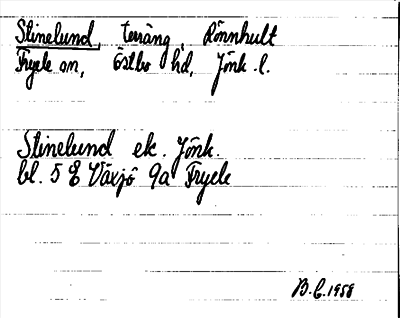 Stinelund, terräng, Rönnhult
Fryele sn, Östbo hd, Jönk. l.
Stinelund ek. Jönk.
bl. 5 E Växjö 9a Fryele
B.C. 1958